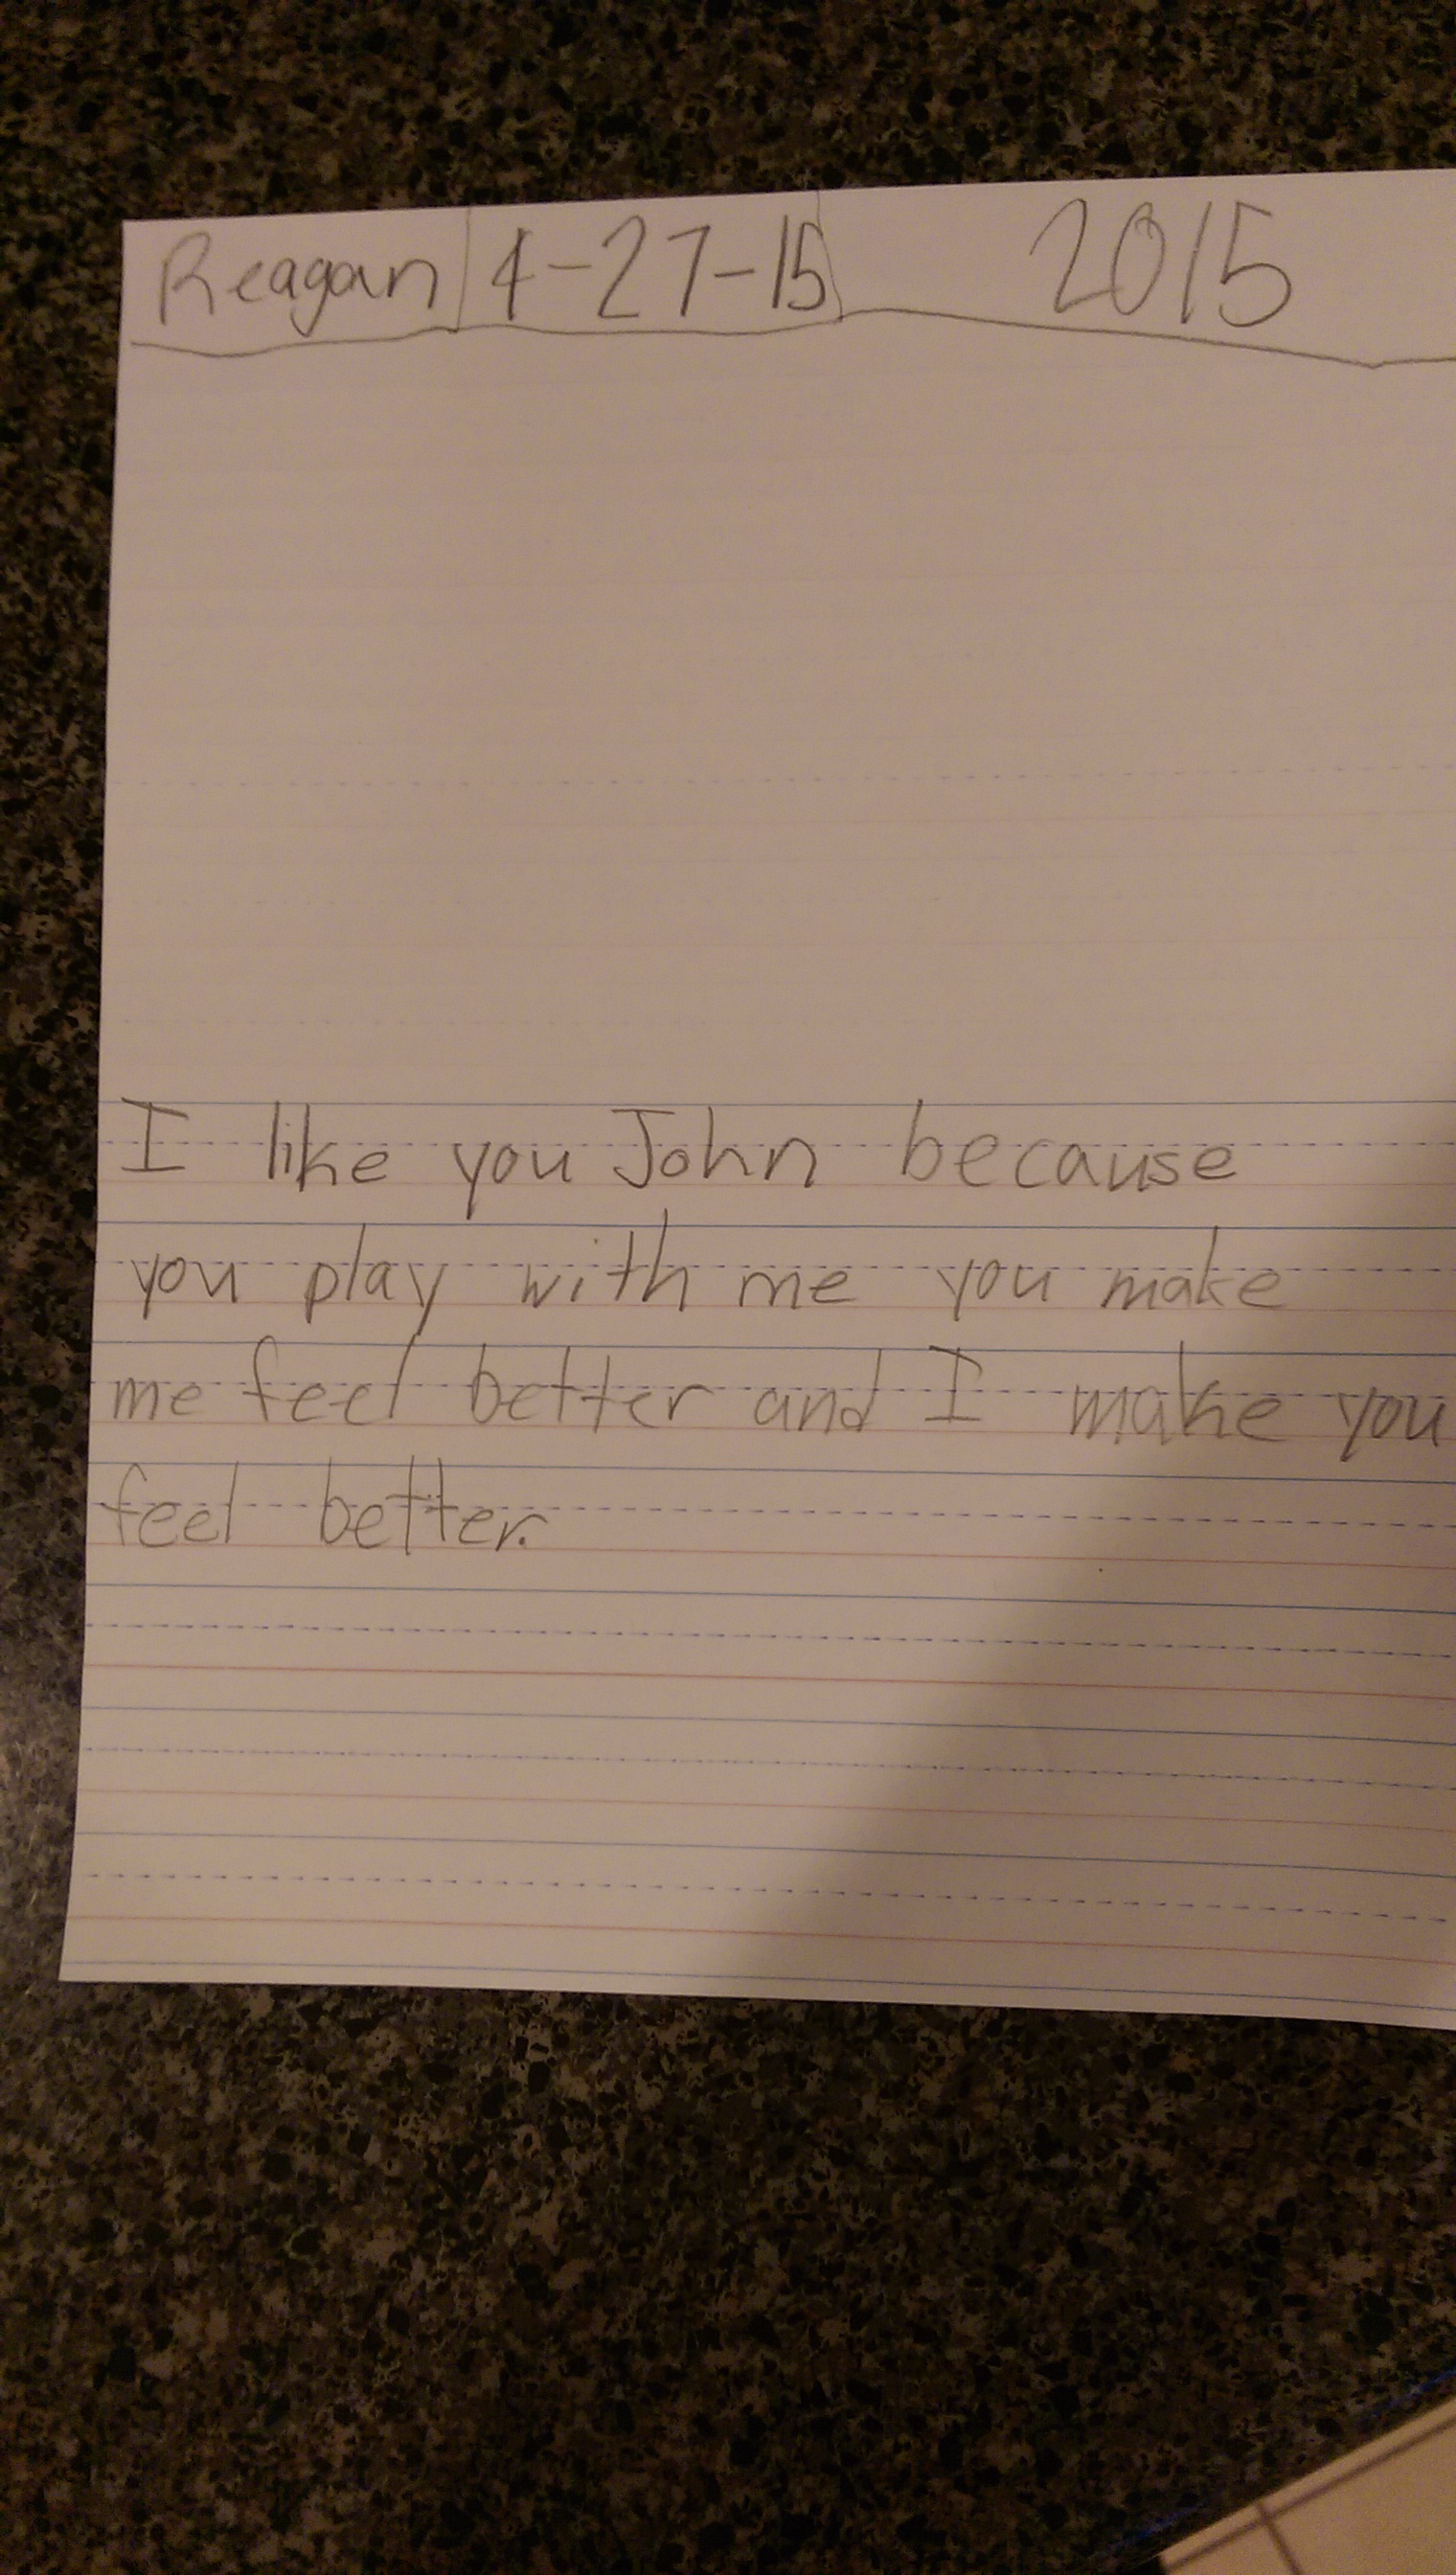 Reagan 4-27-15 2015
I like you John because
you play with me you make
me feel better and I make you
feel better.